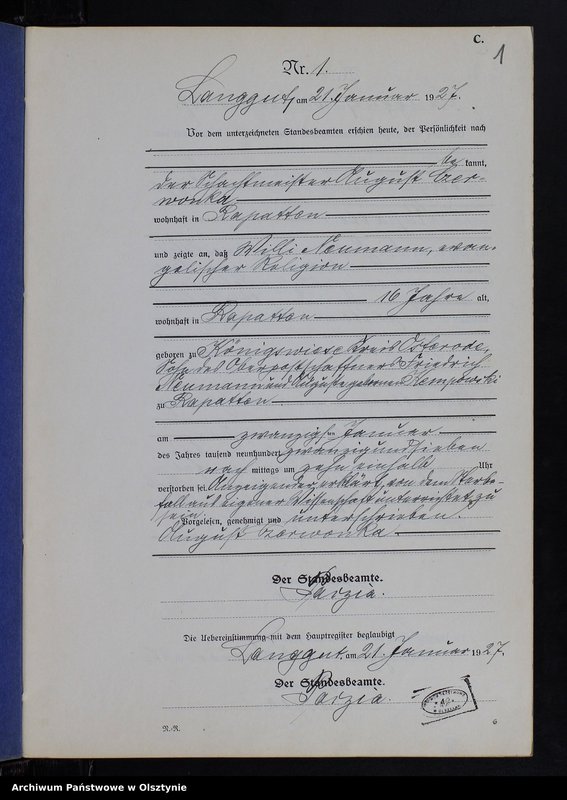 C.
1
Nr. 1.
Langgut, am 21. Januar 1927.
Vor dem unterzeichneten Standesbeamten erschien heute, der Persönlichkeit nach
be kannt,
der Schachtmeister August Czer-
wonka
wohnhaft in Rapatten
und zeigte an, daß Willi Neumann, evan-
gelischer Religion
16 Jahre alt,
wohnhaft in Rapatten
geboren zu Königswiese Kreis Osterode,
Sohn des Oberpostschaffners Friedrich
Neumann und Auguste geborenen Kempowski
zu Rapatten
am zwanzigsten Januar
des Jahres tausend neunhundert zwanzigundsieben
nach mittags um zehn einhalb Uhr
verstorben sei. Anzeigender erklärt, von dem Sterbe-
fall aus eigener Wissenschaft unterrichtet zu
sein.
Vorgelesen, genehmigt und unterschrieben.
August Czerwonka
Der Standesbeamte.
Parzia.
Die Uebereinstimmung mit dem Hauptregister beglaubigt
Langgut, am 21. Januar 1927.
Der Standesbeamte.
Parzia.
R.-R.
6
Archiwum Państwowe w Olsztynie